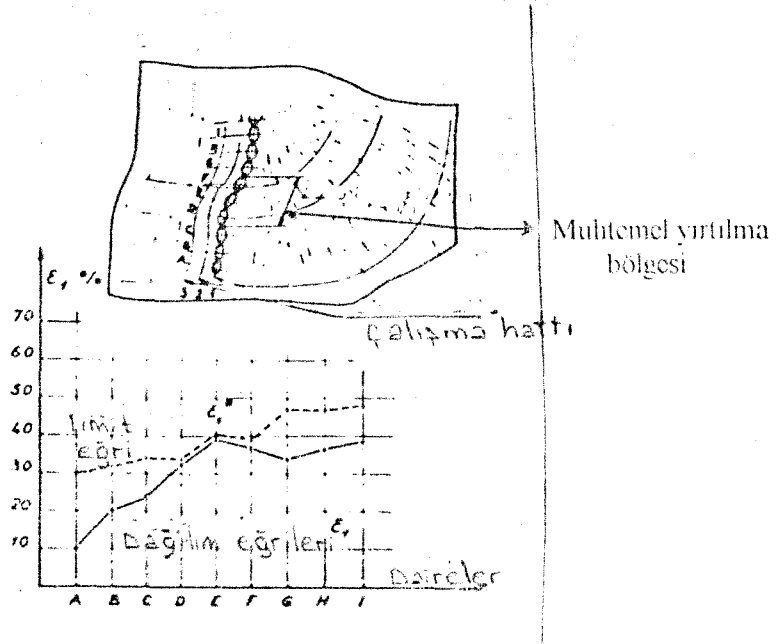 Muhtemel yırtılma
bölgesi
Çalışma hattı
ε₁ %
70
60
50
40
30
20
10
Limit
eğri
ε₁*
Dağılım eğrileri ε₁
Daireler
A B C D E F G H I
3 2 1